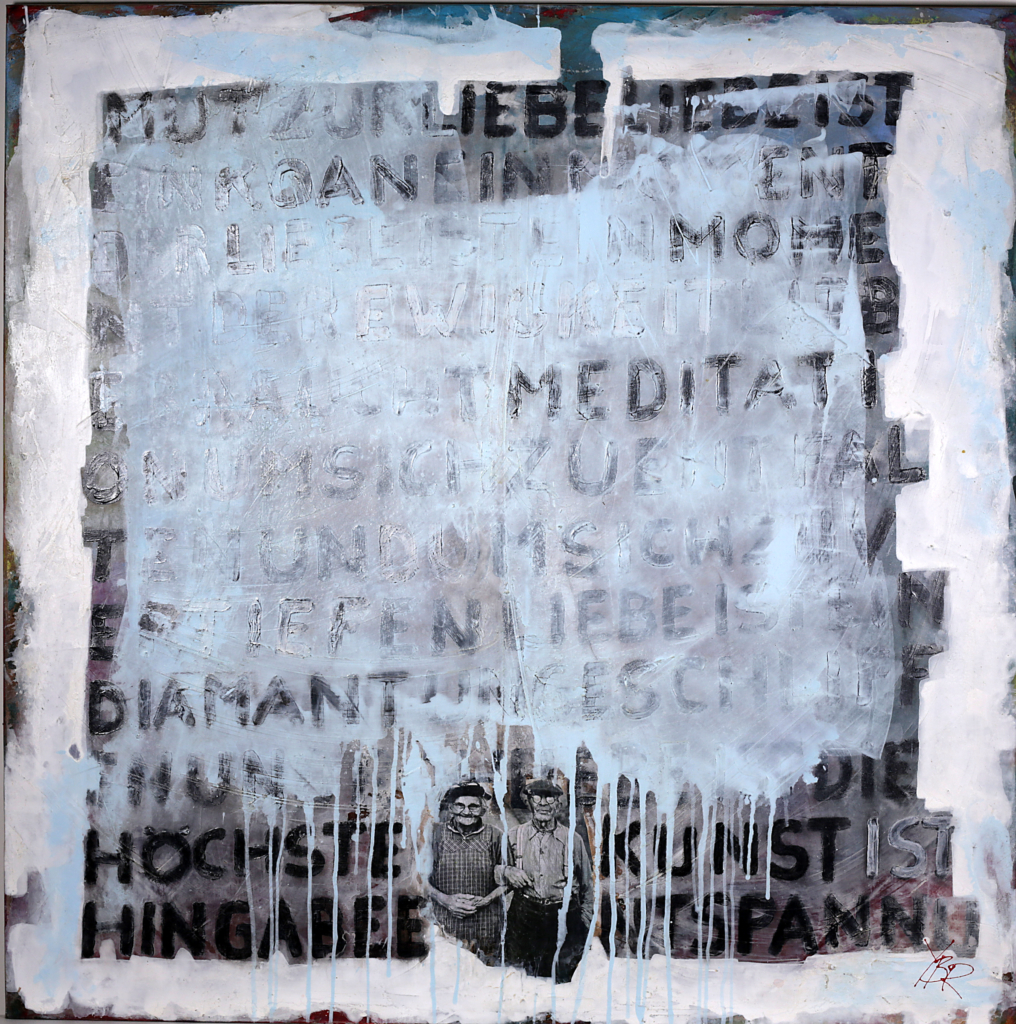 MUTZURLIEBELIEBEIST
EINKOANEIN ENT
LIEBEISTEINMOME
DEREWIGKEITLIEB
BRAUCHTMEDITATI
ONUMSICHZUENTFAL
TENUNDUMSICHZUV
ERTIEFENLIEBEISTEIN
DIAMANTUNGESCHLIFF
DIE
HÖCHSTE KUNST IST
HINGABEE NTSPANN